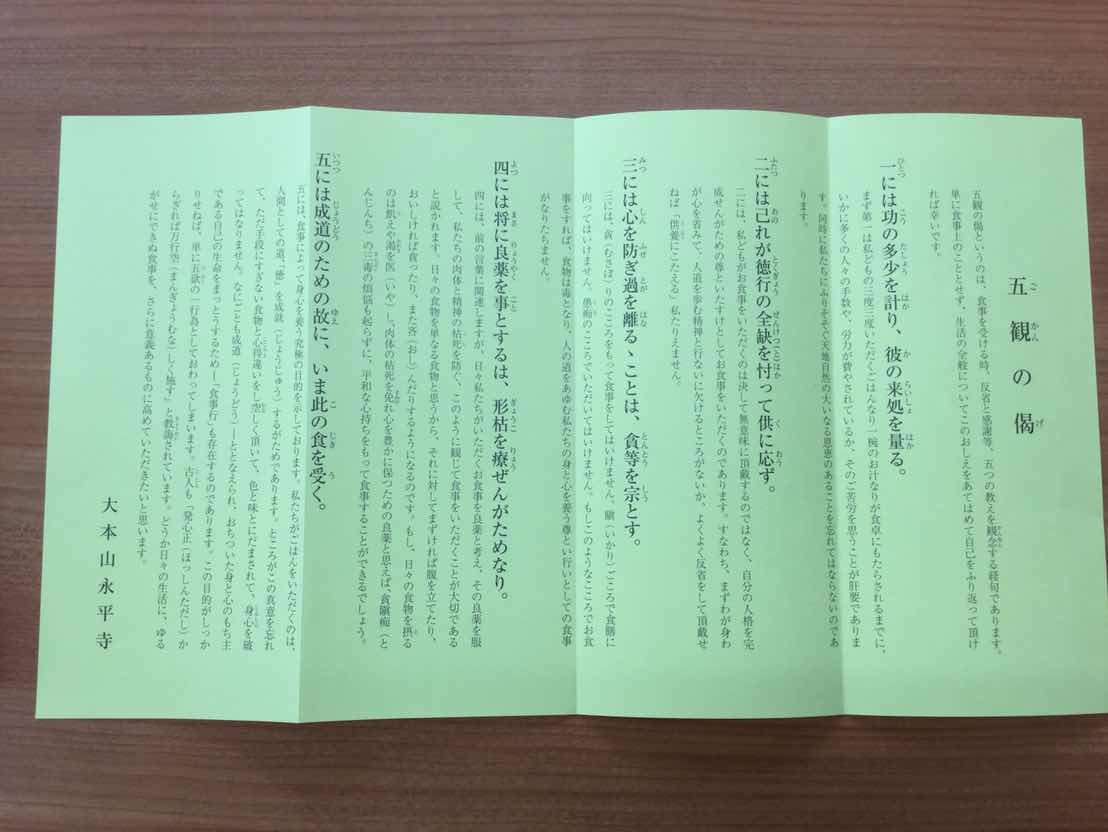 五観の偈
五観の偈というのは、食事を受ける時、反省と感謝等、五つの教えを観念する経句であります。
単に食事上のこととせず、生活の全般についてこのおしえをあてはめて自己をふり返って頂け
れば幸いです。
一には功の多少を計り、彼の来処を量る。
まず第一は私どもの三度三度いただくごはんなり一椀のお汁なりが食卓にもたらされるまでに、
いかに多くの人々の手数や、労力が費やされているか、そのご苦労を思うことが肝要でありま
す。同時に私たちにふりそそぐ天地自然の大いなる恩恵のあることを忘れてはならないのであ
ります。
二には己れが徳行の全缺を忖って供に応ず。
二には、私どもがお食事をいただくのは決して無意味に頂戴するのではなく、自分の人格を完
成せんがための尊といたすけとしてお食事をいただくのであります。すなわち、まずわが身わ
が心を省みて、人道を歩む精神と行ないに欠けるところがないか、よくよく反省をして頂戴せ
ねば「供養にこたえる」私たりえません。
三には心を防ぎ過を離るゝことは、貪等を宗とす。
三には、貪(むさぼ)りのこころをもって食事をしてはいけません。瞋(いかり)ごころで食膳に
向ってはいけません。愚痴のこころでいただいてはいけません。もしこのようなこころでお食
事をすれば、食物は毒となり、人の道をあゆむ私たちの身と心を養う尊とい行いとしての食事
がなりたちません。
四には将に良薬を事とするは、形枯を療ぜんがためなり。
四には、前の言葉に関連しますが、日々私たちがいただくお食事を良薬と考え、その良薬を服
して、私たちの肉体と精神の枯死を防ぐ、このように観じて食事をいただくことが大切である
と説かれます。日々の食物を単なる食物と思うから、それに対してまずければ腹を立てたり、
おいしければ貪ったり、また吝(おし)んだりするようになるのです。もし、日々の食物を摂る
のは飢えや渇を医(いや)し。肉体の枯死を免れ心を豊かに保つための良薬と思えば、貪瞋痴(と
んじんち)の三毒の煩悩も起らずに、平和な心持ちをもって食事することができるでしょう。
五には成道のための故に、いま此の食を受く。
五には、食事によって身心を養う究極の目的を示しております。私たちがごはんをいただくのは、
人間としての道、「徳」を成就(じょうじゅ)するがためであります。ところがこの真意を忘れ
て、ただ手段にすぎない食物と心得違いをし空しく頂いて、色と味とにだまされて、身心を破
ってはなりません。なにごとも成道(じょうどう)―ととなえられ、おちついた身と心のもち主
である自己の生命をまっとうするため―「食事行」も存在するのであります。この目的がしっか
りせねば、単に五欲の一行為としておわってしまいます。古人も「発心正(ほっしんただし)か
らざれば万行空(まんぎょうむな)しく施す」と教誨されています。どうか日々の生活に、ゆる
がせにできぬ食事を、さらに意義あるものに高めていただきたいと思います。
大本山永平寺